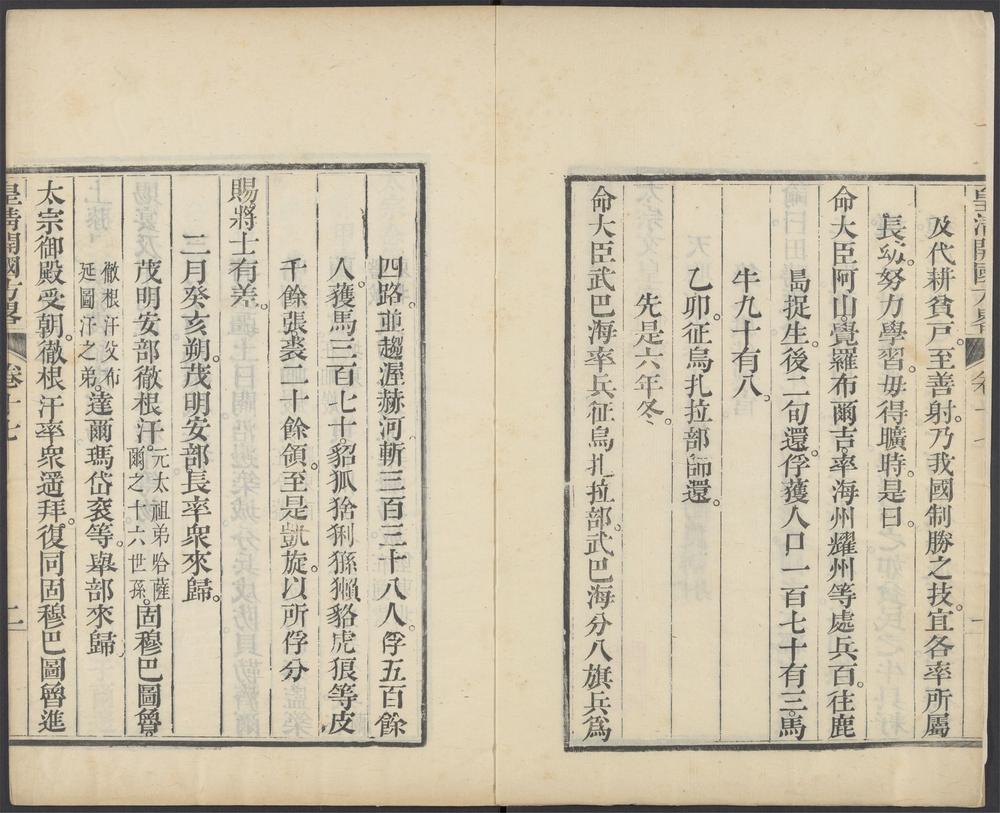 皇清開國方畧 卷十七
及代耕貧戶。至善射。乃我國制勝之技。宜各率所屬
長幼努力學習。毋得曠時。是日。
命大臣阿山。覺羅布爾吉。率海州耀州等處兵百。往鹿
島捉生。後二旬還。俘獲人口一百七十有三。馬
牛九十有八。
乙卯。征烏扎拉部師還。
先是六年冬。
命大臣武巴海率兵征烏扎拉部。武巴海分八旗兵爲
四路。並趨渥赫河。斬三百三十八人。俘五百餘
人。獲馬三百七十。貂狐猞猁猻獺貉虎狼等皮
千餘張。裘二十餘領。至是凱旋。以所俘分
賜將士有差。
三月癸亥朔。茂明安部長率衆來歸。
茂明安部徹根汗。元太祖弟哈薩
爾之十六世孫。固穆巴圖魯
徹根汗父布
延圖汗之弟。達爾瑪岱袞等。舉部來歸。
太宗御殿受朝。徹根汗率衆遙拜。復同固穆巴圖魯進
皇清開國方畧 卷十七 二